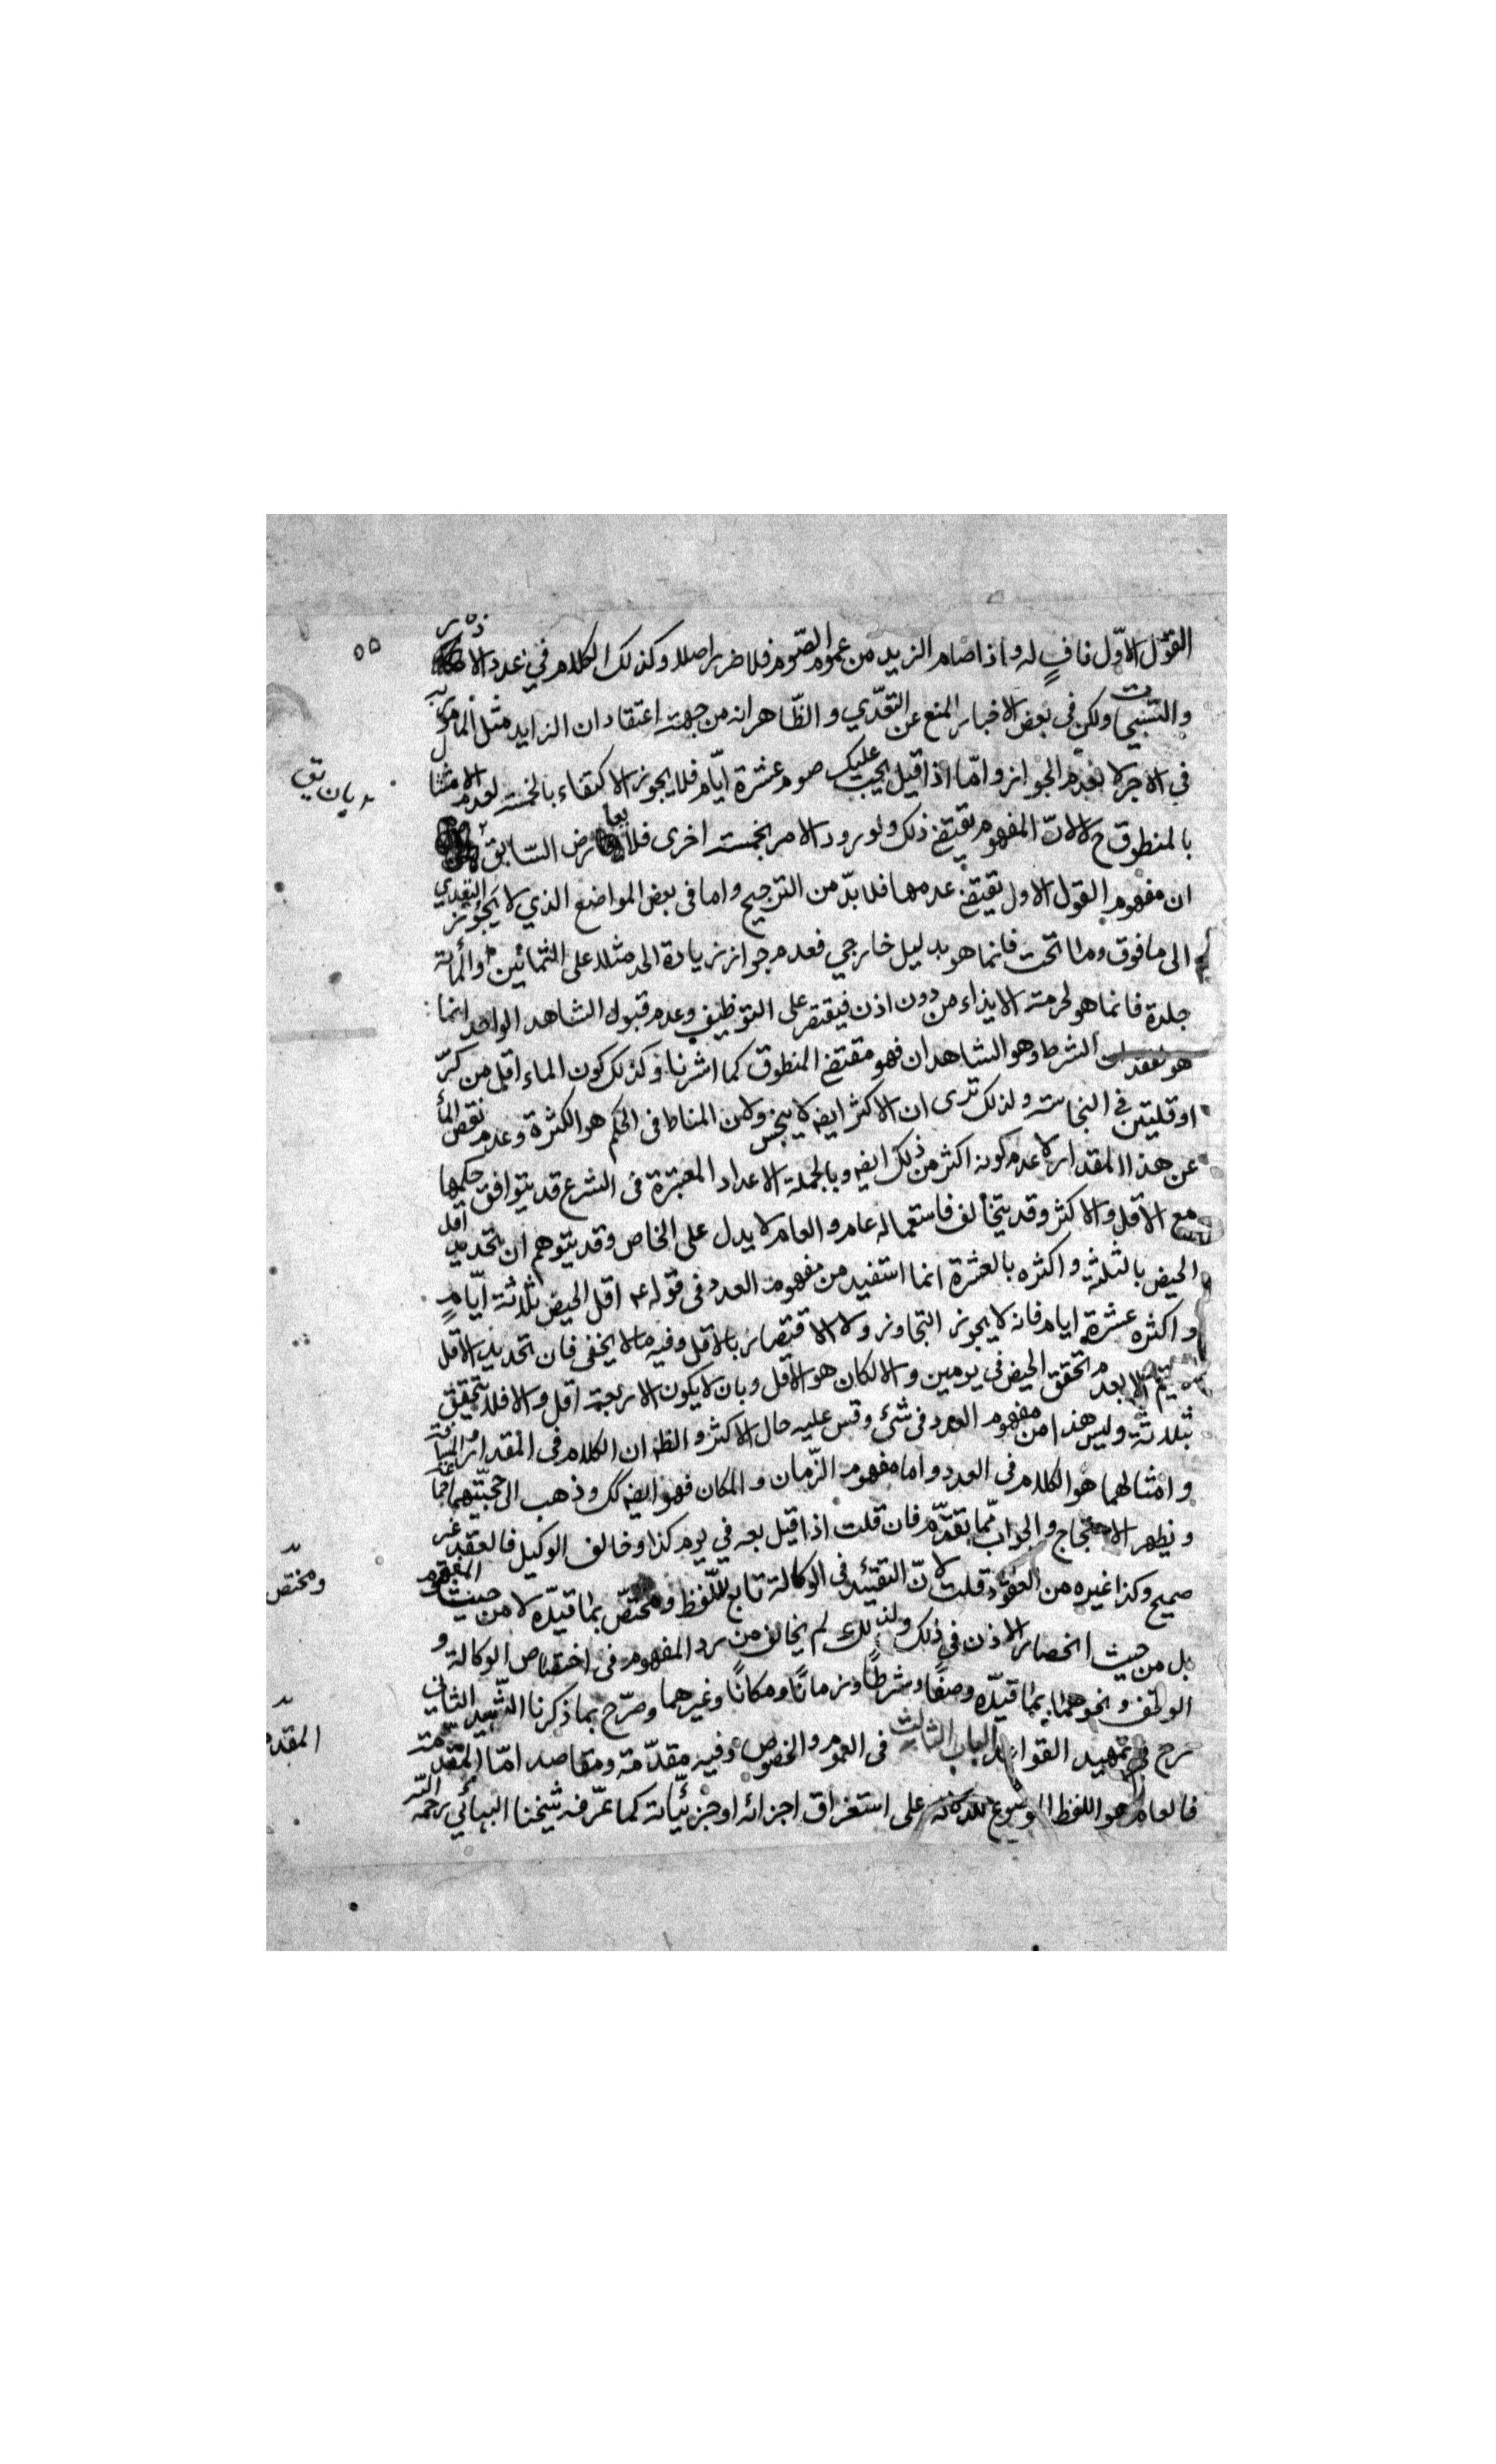 ٥٥
القول الاوّل نافٍ له واذا صام الزيد من عموم الصّوم فلا ضرر اصلا وكذلك الكلام في عدد الاذكار
والتسبيحات ولكن فى بعض الاخبار المنع عن التعّدي والظّاهر انه من جهة اعتقاد ان الزايد مثل المأمور به
في الاجر لا بعدم الجواز وامّا اذا قيل يجب عليك صوم عشرة ايّام فلا يجوز الاكتفاء بالخمسة لعدم الامتثال
بالمنطوق ح لا لانّ المفهوم يقتضي ذلك ولو ورد الامر بخمسة اخرى فلا يعارض السّابق
ان مفهوم القول الاول يقتضي عدمها فلا بدّ من الترجيح واما فى بعض المواضع الذي لا يجوز التعدي
الى ما فوق وما تحت فانما هو بدليل خارجي فعدم جواز زيادة الحد مثلا على الثمانين والمأة
جلدة فانما هو لحرمة الايذاء من دون اذن فيقتصر على التوظيف وعدم قبول الشاهد الواحد انما
هو لفقد الشرط وهو الشاهدان فهو مقتضي المنطوق كما اشرنا وكذلك كون الماء اقل من كرّ
او قلتين في النجاسة ولذلك ترى ان الاكثر ايضا لا ينجس ولان المناط فى الحكم هو الكثرة وعدم نقص المأ
عن هذا المقدار لا عدم كونه اكثر من ذلك ايضا وبالجملة الاعداد المعتبرة فى الشرع قد يتوافق حكمها
مع الاقل والاكثر وقد يتخالف فاستعماله عام والعام لا يدل على الخاص وقد يتوهم ان تحديد اقل
الحيض بالثلثة واكثره بالعشرة انما استفيد من مفهوم العدد فى قوله ع اقل الحيض ثلاثة ايّامٍ
واكثره عشرة ايام فانه لا يجوز التجاوز ولا الاقتصار بالاقل وفيه ما لا يخفى فان تحديد الاقل
يتم الا بعدم تحقق الحيض في يومين والا لكان هو الاقل وبان لا يكون الاربعة اقل والا فلا يتحقق
بثلاثة وليس هذا من مفهوم العدد فى شئ وقس عليه حال الاكثر والظ ان الكلام فى المقدار والمسافة
وامثالهما هو الكلام فى العدد واما مفهوم الزّمان والمكان فهو ايضا كك وذهب الى حجيّتهما جماعة
ويظهر الاحتجاج والجواب ممّا تقدّم فان قلت اذا قيل بعه في يوم كذا وخالف الوكيل فالعقد غير
صحيح وكذا غيره من العقود قلت لانّ التقييد فى الوكالة تابع للّفظ ومختصّ بما قيدّه لا من حيث المفهوم
بل من حيث انحصار الاذن في ذلك ولذلك لم يخالف من رد المفهوم فى اختصاص الوكالة و
الوقف ونحوهما بما قيدّه وصفًا وشرطًا وزمانًا ومكانًا وغيرهما وصرّح بما ذكرنا الشّهيد الثاني
رح في تمهيد القواعد الباب الثالث فى العموم والخصوص وفيه مقدّمة ومقاصد امّا المقدّمة
فالعام هو اللفظ الموضوع للدلالة على استغراق اجزائه او جزئيّاته كما عرّفه شيخنا البهائي رحمه اللّه
ومختصّ
المقدمه